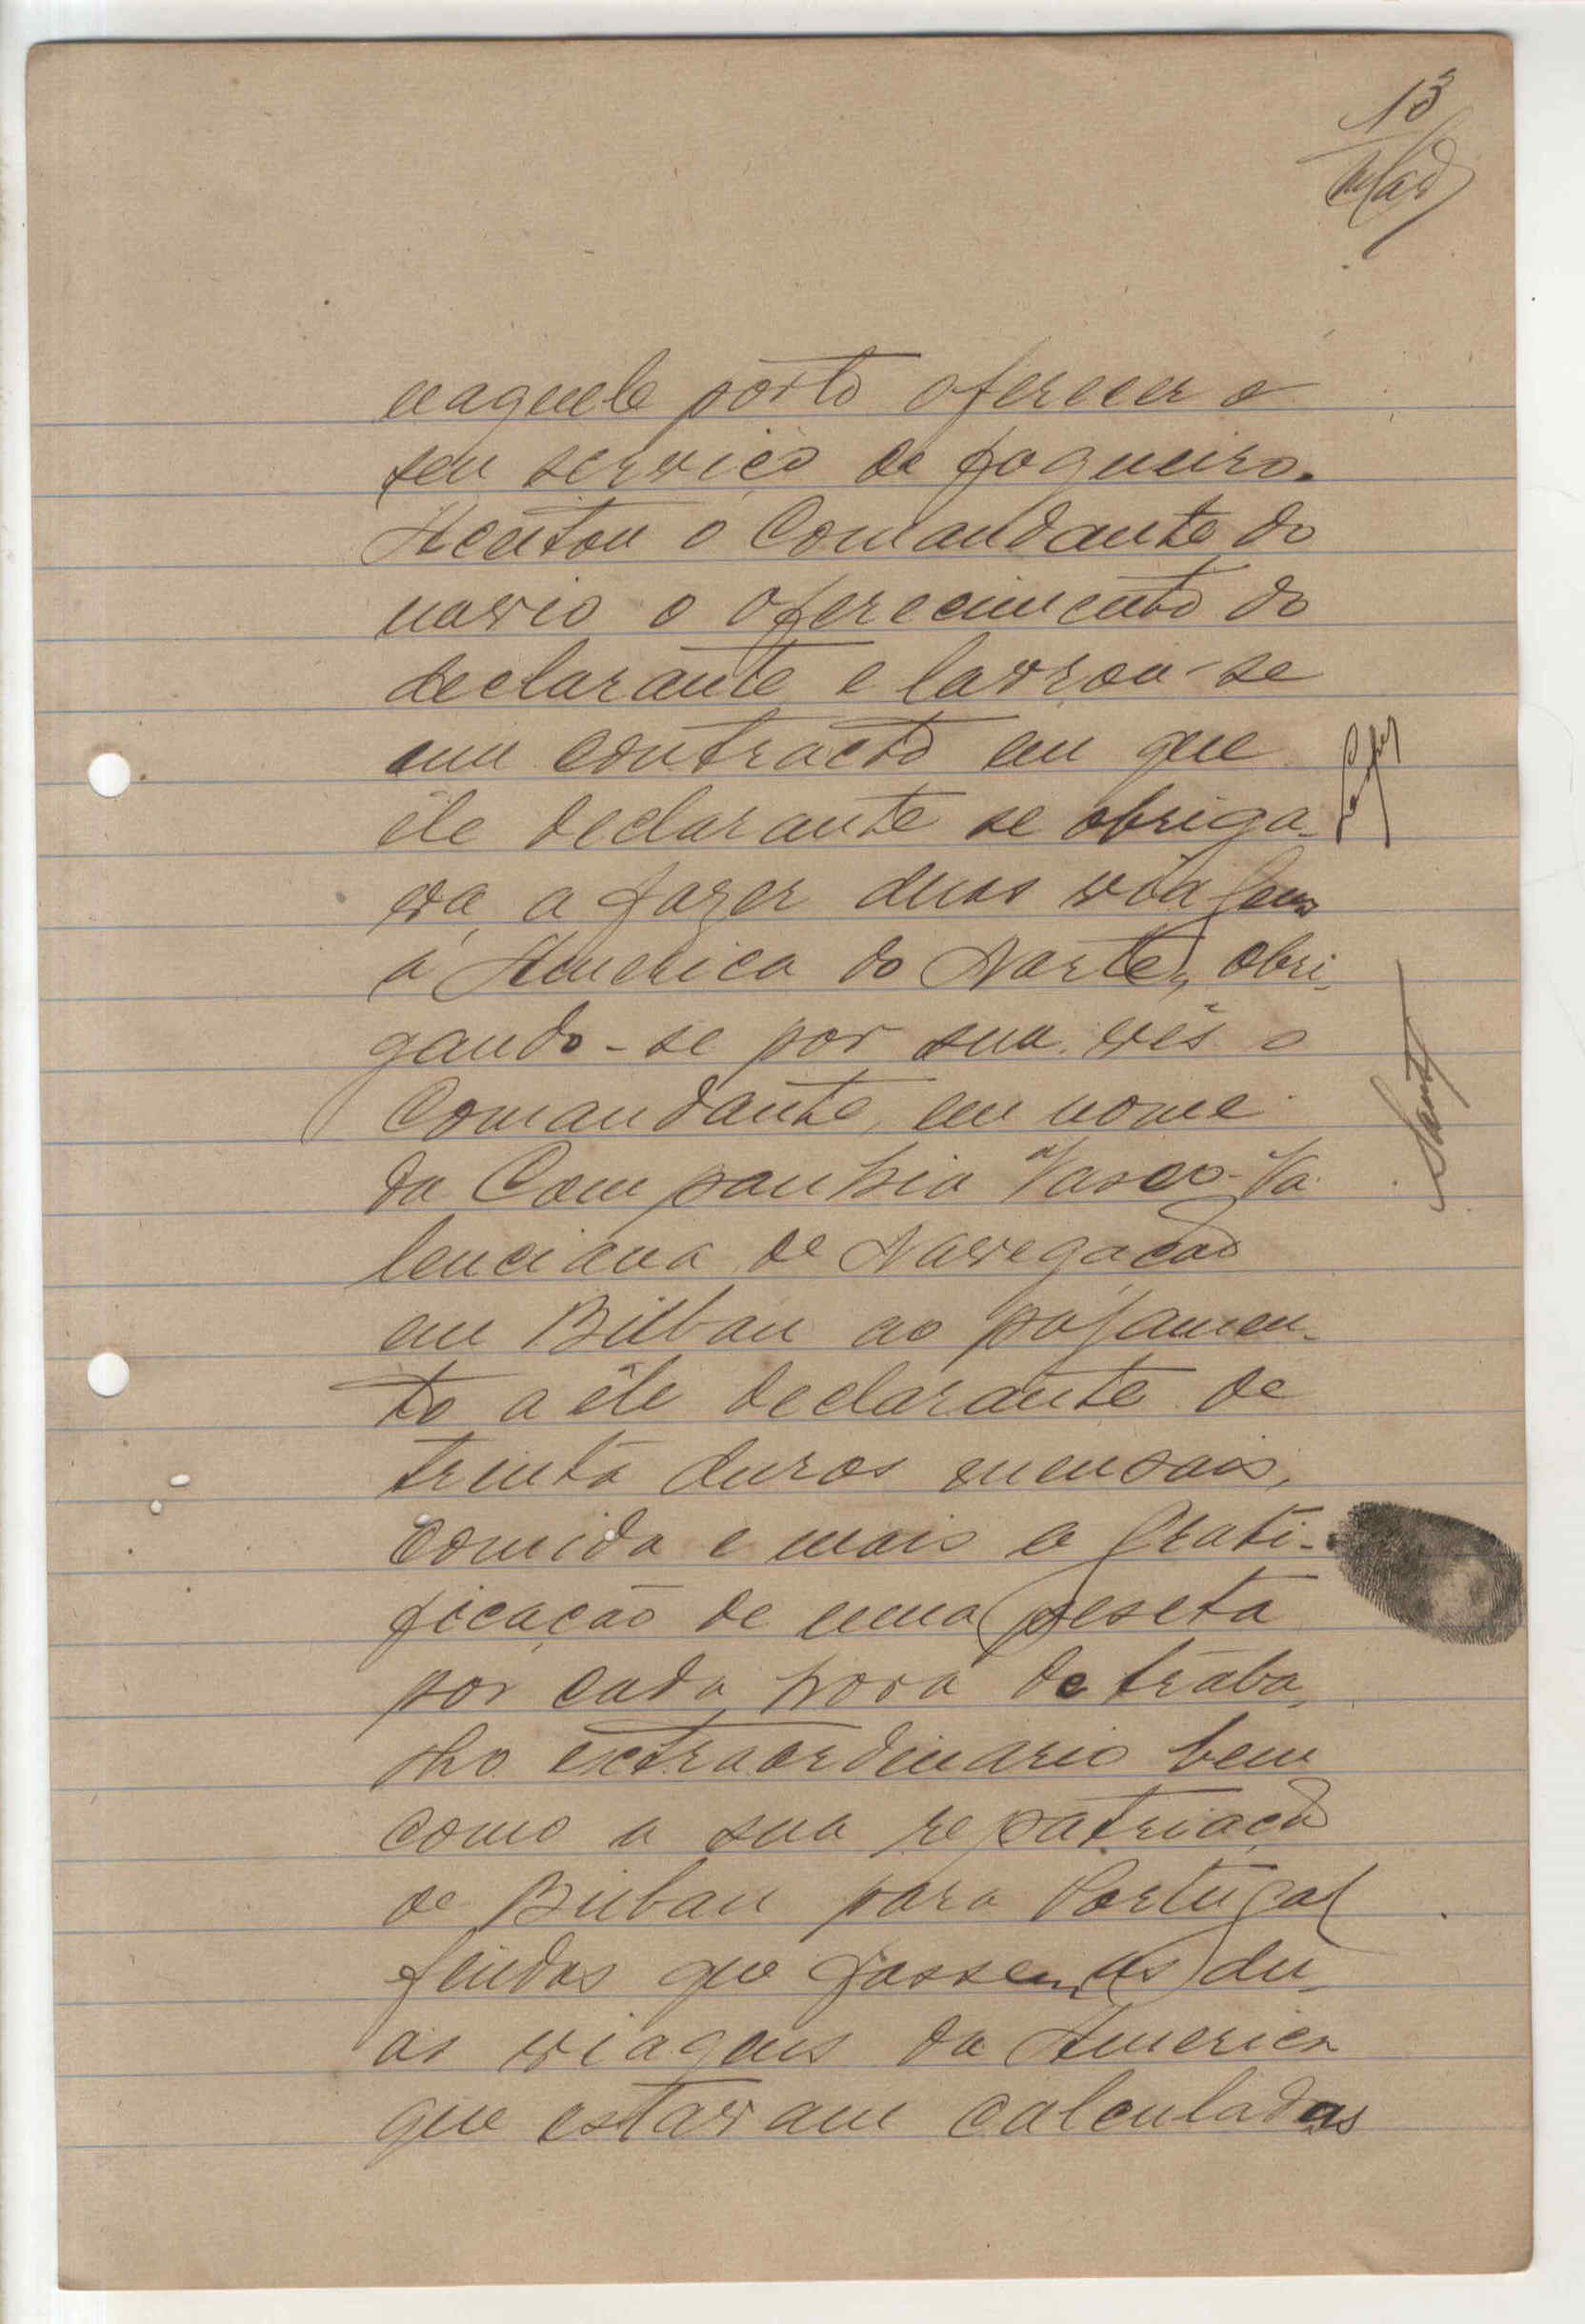 13
naquele porto oferecer o
seu serviço de fogueiro.
Aceitou o Comandante do
navio o oferecimento do
declarante e lavrou-se
um contracto em que
êle declarante se obriga-
va a fazer duas viagens
á America do Norte, obri-
gando-se por sua vês o
Comandante, em nome
da Companhia "Vasco-Va
lenciana de Navegação
em Bilbau ao pagamen-
to a êle declarante de
trinta duros mensais,
comida e mais a grati-
ficação de uma peseta
por cada hora de traba-
lho extraordinario bem
como a sua repatriação
de Bilbau para Portugal
findas que fossem as du-
as viagens da America
que estavam calculadas
Santos